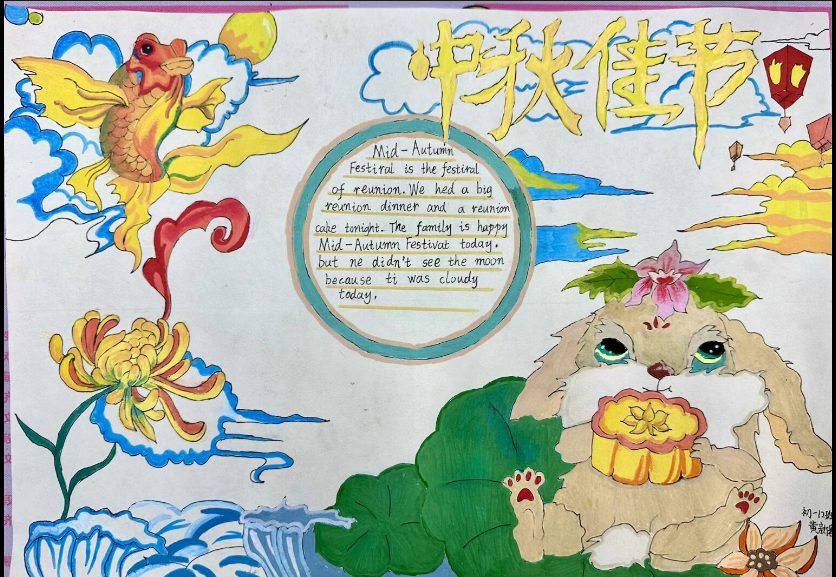 中秋佳节
Mid-Autumn
Festival is the festival
of reunion. We hed a big
reunion dinner and a reunion
cake tonight. The family is happy
Mid-Autumn Festivat today.
but ne didn't see the moon
because ti was cloudy
today.
初一12班